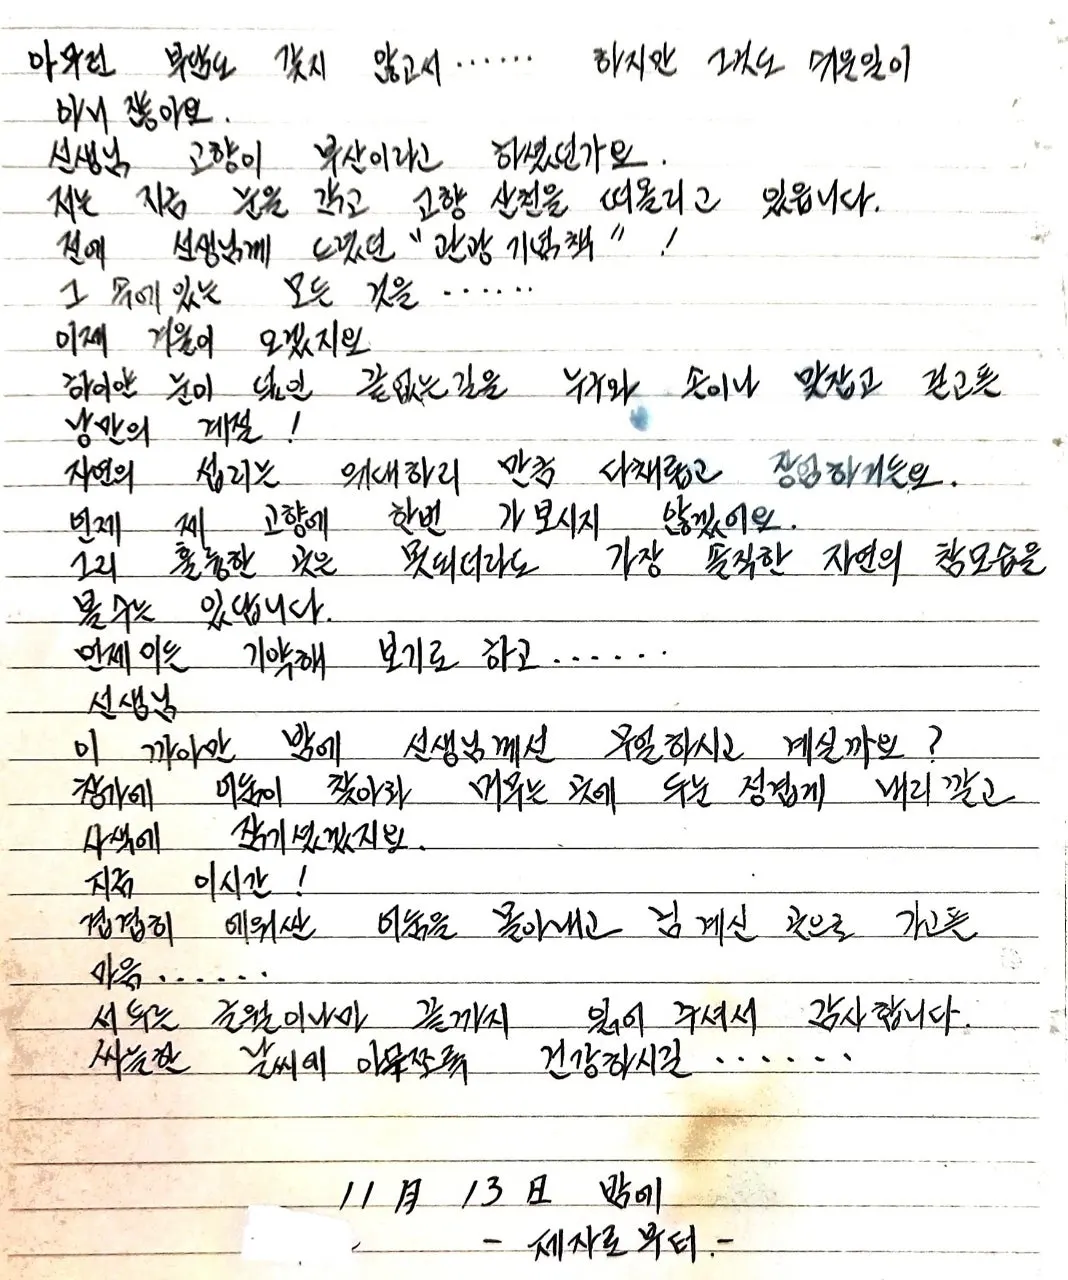 아무런 부담도 갖지 않고서 ...... 하지만 그것도 쉬운일이
아니 잖아요.
선생님 고향이 부산이라고 하셨던가요.
저는 지금 눈을 감고 고향 산천을 떠올리고 있읍니다.
전에 선생님께 드렸던 "관광 기념책" !
그 속에 있는 모든 것을 ......
이제 겨울이 오겠지요
하이얀 눈이 덮인 끝없는 길을 누구와 손이나 맞잡고 걷고픈
낭만의 계절 !
자연의 섭리는 위대하리 만큼 다채롭고 장엄하거든요.
언제 제 고향에 한번 가보시지 않겠어요.
그리 훌륭한 곳은 못되더라도 가장 솔직한 자연의 참모습을
볼 수는 있답니다.
언제이든 기약해 보기로 하고 ......
선생님
이 까아만 밤에 선생님께선 무얼하시고 계실까요 ?
창가에 어둠이 찾아와 머무는 곳에 두눈 정겹게 내리깔고
사색에 잠기셨겠지요.
지금 이시간 !
겹겹히 에워싼 어둠을 몰아내고 님 계신 곳으로 가고픈
마음 ......
서두는 글월이나마 끝까지 읽어 주셔서 감사합니다.
싸늘한 날씨에 아무쪼록 건강하시길 ......
11月 13日 밤에
- 제자로부터. -